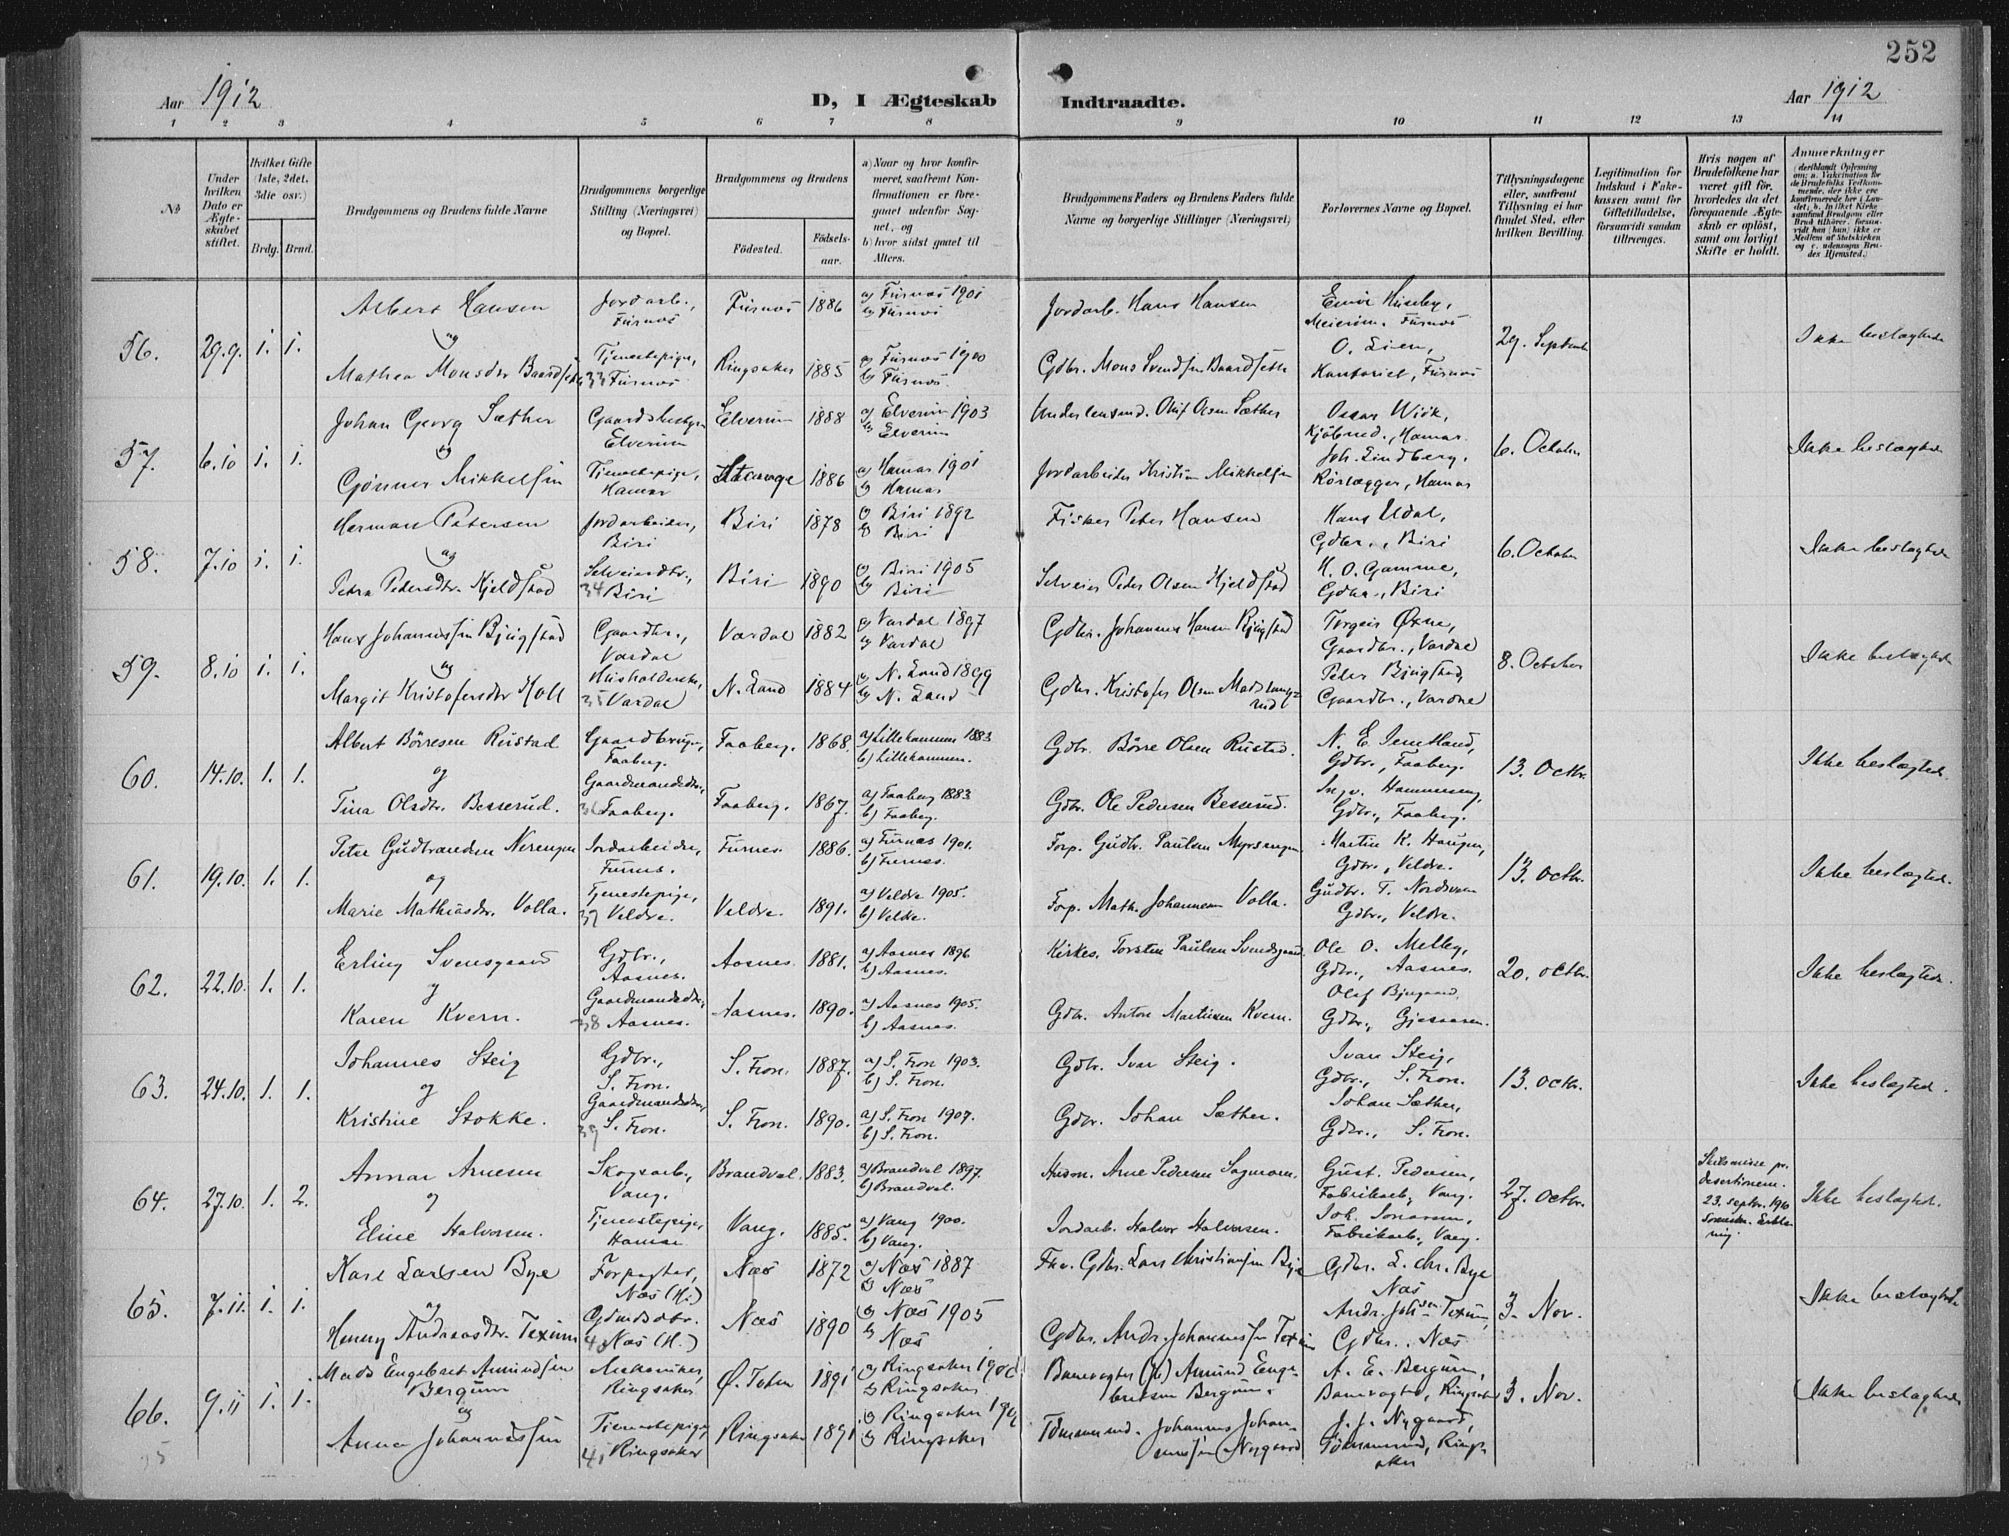 252
Aar 1912
D, I Ægteskab Indtraadte.
Aar 1912
1 2 3 4 5 6 7 8 9 10 11 12 13 14
No
Under hvilken Dato er Ægteskabet stiftet.
Hvilket Gifte (1ste, 2det, 3die osv.)
Brdg. Brud.
Brudgommens og Brudens fulde Navne
Brudgommens borgerlige Stilling (Næringsvei) og Bopæl.
Brudgommens og Brudens
Fødested.
Fødselsaar.
a) Naar og hvor konfirmeret, saafremt Konfirmationen er foregaaet udenfor Sognet, og
b) hvor sidst gaaet til Alters.
Brudgommens Faders og Brudens Faders fulde Navne og borgerlige Stillinger (Næringsvei)
Forlovernes Navne og Bopæl.
Tillysningsdagene eller, saafremt Tillysning ei har fundet Sted, efter hvilken Bevilling.
Legitimation for Indskud i Enkekassen samt for Giftetilladelse, forsaavidt saadan tiltrænges.
Hvis nogen af Brudefolkene har været gift før, hvorledes da det foregaaende Ægteskab er opløst, samt om lovligt Skifte er holdt.
Anmærkninger
56. 29.9. 1. 1.
Albert Hansen
og
Mathea Monsdtr Baardseth
Jordarb., Furnes
Tjenestepige, 33 Furnes
Furnes 1886 a) Furnes 1901 b) Furnes
Ringsaker 1885 a) Furnes 1900 b) Furnes.
Jordarb. Hans Hansen
Gdbr. Mons Svendsen Baardseth
Einar Huseby,
Meierim. Furnes
O. Lien,
Kontorist, Furnes
29. Septemb
Ikke beslægtede
57. 6.10 1. 1.
Johan Georg Sæther
og
Gønner Mikkelsen
Gaardsbestyrer Elverum
Tjenestepige, Hamar
Elverum 1888 a) Elverum 1903 b) Elverum
Stavange 1886 a) Hamar 1901 b) Hamar
Olaf Olsen Sæther
Jordarbeider Kristian Mikkelsen
Oscar Wiik,
Kjøbmd., Hamar.
Joh. Lindberg,
Rørlægger, Hamar
6. October
Ikke beslægtede
58. 7.10 1. 1.
Herman Petersen
og
Petra Pedersdtr. Kjeldstad
Jordarbeider, Biri
Selveierdtr., 34 Biri
Biri 1878 a) Biri 1892 b) Biri
Biri 1890 a) Biri 1905 b) Biri
Fisker Peter Hansen
Selveier Peder Olsen Kjeldstad
Hans Udal,
Gdbr., Biri
H. O. Gamme,
Gdbr., Biri
6. October
Ikke beslægtede
59. 8.10 1. 1.
Hans Johannessen Bjugstad
og
Margit Kristofersdtr Holl
Gaardbr., Vardal
Husholderske, 35 Vardal
Vardal 1882 a) Vardal 1897 b) Vardal
N. Land 1884 a) N. Land 1899 b) N. Land
Gdbr. Johannes Hansen Bjugstad
Gdbr. Kristofer Olsen
Torgeir Øxne,
Gaardbr., Vardal
Peter Bjugstad,
Gaardbr., Vardal
8. October
Ikke beslægtede
60. 14.10. 1. 1.
Albert Börresen Rustad
og
Tina Olsdtr. Besserud.
Gaardbruger, Faaberg.
Gaardmandsdtr., 36 Faaberg.
Faaberg. 1868. a) Lillehammer 1883 b) Lillehammer.
Faaberg. 1867. a) Faaberg 1883 b) Faaberg.
Gdbr. Börre Olsen Rustad.
Gdbr. Ole Pedersen Besserud.
N. E. Jemtland,
Gdbr., Faaberg.
Ingv. Hammeseng,
Gdbr., Faaberg.
13. Octbr.
Ikke beslægtede.
61. 19.10. 1. 1.
Peter Gudbrandsen Nerengen
og
Marie Mathiasdtr. Volla.
Jordarbeider, Furnes.
Tjenestepige, 37 Veldre.
Furnes. 1886. a) Furnes 1901. b) Furnes.
Veldre. 1891. a) Veldre 1905. b) Veldre.
Forp. Gudbr. Paulsen Myrsengen
Forp. Math. Johannesen Volla.
Martin K. Haugen,
Gdbr., Veldre.
Gudbr. T. Nordsveen
Gdbr., Veldre.
13. Octbr.
Ikke beslægtede.
62. 22.10. 1. 1.
Erling Svensgaard
og
Karen Kvern.
Gdbr., Aasnes.
Gaardmandsdtr., 38 Aasnes.
Aasnes. 1881. a) Aasnes 1896 b) Aasnes.
Aasnes. 1890. a) Aasnes 1905. b) Aasnes.
Kirkes. Torsten Paulsen Svensgaard
Gdbr. Anton Martinsen Kvern.
Ole O. Melby,
Gdbr., Aasnes.
Olaf Bjugaard,
Gdbr., Gjesaasen.
20. Octbr.
Ikke beslægtede.
63. 24.10. 1. 1.
Johannes Steig
og
Kristine Stokke.
Gdbr., S. Fron.
Gaardmandsdtr., 39 S. Fron.
S. Fron. 1887. a) S. Fron 1903. b) S. Fron.
S. Fron. 1890. a) S. Fron 1907. b) S. Fron.
Gdbr. Ivar Steig.
Gdbr. Johan Sæther.
Ivar Steig,
Gdbr., S. Fron.
Johan Sæther,
Gdbr., S. Fron.
13. Octbr.
Ikke beslægted.
64. 27.10. 1. 2.
Annar Arnesen
og
Eline Halvorsen.
Skogsarb., Vang.
Tjenestepige, Hamar
Brandval. 1883. a) Brandval 1897. b) Brandval.
Vang. 1885. a) Vang 1900. b) Vang.
Husm. Arne Pedersen Sagmoen.
Jordarb. Halvor Halvorsen.
Gust. Pedersen,
Fabrikarb., Vang.
Joh. Jonassen,
Fabrikarb., Vang.
27. Octbr.
Skilsmisse pr. desertionem. 23. septbr. 1910
Ikke beslægtede.
65. 7.11. 1. 1.
Karl Larsen Bye
og
Henny Andreasdtr. Texum
Forpagter, Næs (H.)
Gdmdsdtr. 40 Næs (H.)
Næs 1872 a) Næs 1887 b) Næs
Næs 1890 a) Næs 1905 b) Næs
Fhv. Gdbr. Lars Christiansen Bye
Gdbr. Andr. Johannessen Texum
Gdbr. L. Chr. Bye
Næs
Andr. Johsen Texum,
Gdbr., Næs
3. Nov.
Ikke beslægtede
66. 9.11 1. 1.
Mads Engebret Amundsen
Bergum
og
Anna Johannessen
Mekaniker, Ringsaker
Tjenestepige, 41 Ringsaker
Ø. Toten 1891 a) Ringsaker b) Ringsaker
Ringsaker 1891 a) Ringsaker b) Ringsaker
Banevogter Amund Engebretsen Bergum.
Tømmermd. Johannes Johannessen Nygaard
A. E. Bergum,
Banevogter, Ringsaker
J. J. Nygaard,
Tømmermd, Ringsaker
3. Nov.
Ikke beslægtede